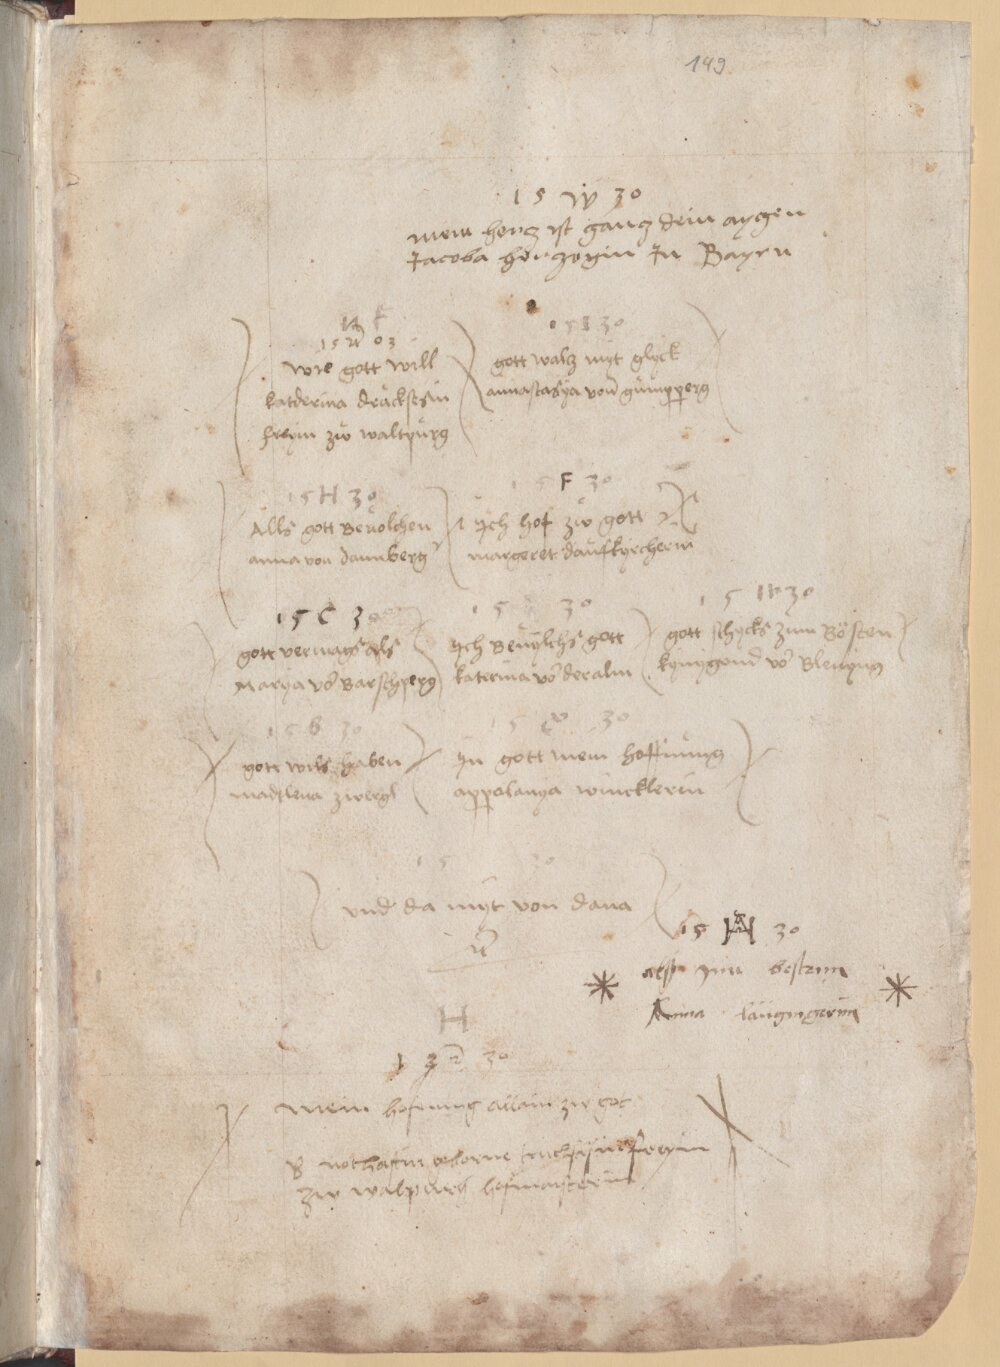 149
15 W 30
mein hertz ist gantz dein aygen
Jacoba hertzogin In Bayrn
15 03
wie gott will
katderina drücksesin
freyin zu waltpurg
15 I 30
gott waltz myt glyck
annastasya von gumpperg
15 H 30
Alls gott Bevolchen
anna von dannberg
15 F 30
ych hof zw gott
margeret daufkyrcherin
15 C 30
gott vermags als
Marya vo Barschperg
15 30
ych Bevylchs gott
katerina vo der alm
15 30
gott schycks zum Bösten
kynygond vo
15 B 30
gott wils haben
madlena zwergl
15 30
In gott mein hoffnung
appolanya wincklerin
15 30
und da myt von dana
15 HA 30
zum bestenn
Anna
H
1 30
Mein hofnung allain zu got
geborne
zu walpurg hofmaisterin